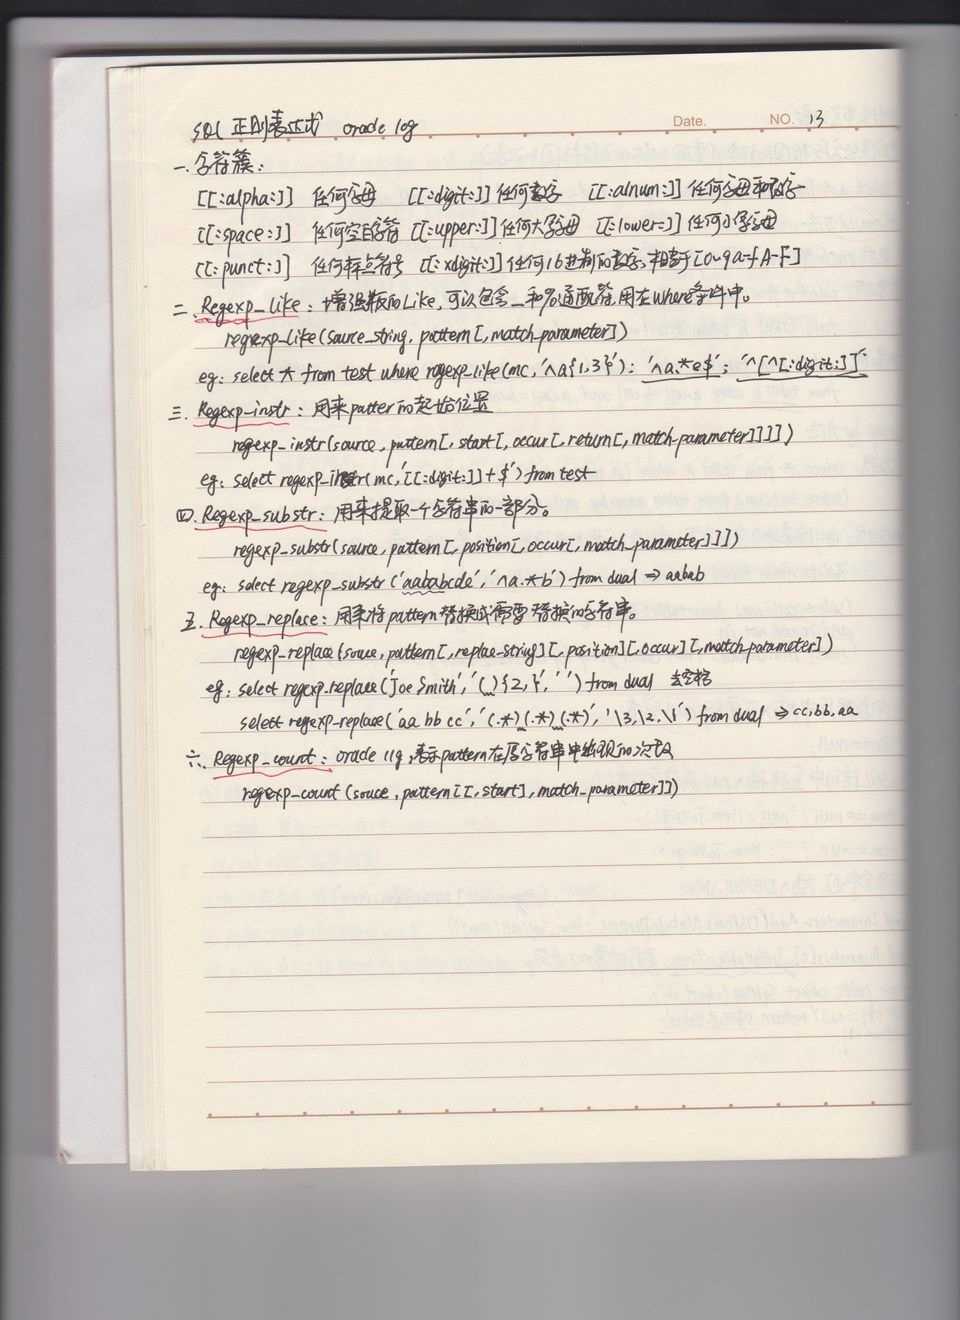 Date. NO. 13
SQL 正则表达式 oracle 10g
一.字符簇:
[[:alpha:]] 任何字母 [[:digit:]] 任何数字 [[:alnum:]] 任何字母和数字
[[:space:]] 任何空白字符 [[:upper:]] 任何大写字母 [[:lower:]] 任何小写字母
[[:punct:]] 任何标点符号 [[:xdigit:]] 任何16进制的数字,相当于[0-9a-fA-F]
二.Regexp_like:增强版的Like,可以包含_和%通配符,用在where条件中。
regexp_like(source_string, pattern[,match_parameter])
eg: select * from test where regexp_like(mc,'^a{1,3}'); '^a.*e$'; '^[^[:digit:]]'
三.Regexp_instr:用来patter的起始位置
regexp_instr(source, pattern[, start[, occur[, return[, match-parameter]]]])
eg: select regexp_instr(mc,'[[:digit:]]+$') from test
四.Regexp_substr:用来提取一个字符串的一部分。
regexp_substr(source, pattern[, position[, occur[, match_parameter]]])
eg: select regexp_substr('aababcde','^a.*b') from dual ⇒ aabab
五.Regexp_replace:用来将pattern替换成需要替换的字符串。
regexp_replace(souce, pattern[, replae-string][, position][, occur][, match-parameter])
eg: select regexp_replace('Joe Smith','( ){2,}',' ') from dual 去空格
select regexp-replace('aa bb cc','(.*) (.*) (.*)','\3,\2,\1') from dual ⇒ cc,bb,aa
六.Regexp_count:oracle 11g,表示pattern在原字符串中出现的次数
regexp_count (souce, pattern[[, start], match_parameter]])